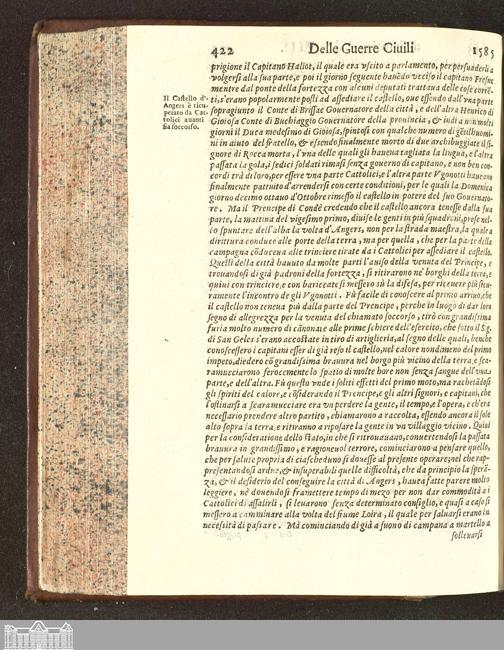 422 Delle Guerre Ciuili 1585
prigione il Capitano Haliot, il quale era vscito a parlamento, per persuaderli a
volgersi alla sua parte, e poi il giorno seguente hauẽdo vcciso il capitano Fresne
mentre dal ponte della fortezza con alcuni deputati trattaua delle cose corrẽ-
Il Castello d'-
Angers è ricu-
perato da Cat-
tolici auanti
sia soccorso.
ti, s'erano popolarmente posti ad assediare il castello, oue essendo dall'vna parte
sopragiunto il Conte di Brissac Gouernatore della città, e dell'altra Henrico di
Gioiosa Conte di Buchiaggio Gouernatore della prouincia, & indi a non molti
giorni il Duca medesimo di Gioiosa, spintosi con qualche numero di gẽtilhuomi-
ni in aiuto del fratello, & essendo finalmente morto di due archibuggiate il si-
gnore di Rocca morta, l'vna delle quali gli haueua tagliata la lingua, e l'altra
passata la gola, i sedici soldati rimasi senza gouerno di capitano, e non ben con-
cordi trà di loro, per essere vna parte Cattolici, e l'altra parte Vgonotti haueuano
finalmente pattuito d'arrendersi con certe conditioni, per le quali la Domenica
giorno decimo ottauo d'Ottobre rimesso il castello in potere del suo Gouernato-
re. Ma il Prencipe di Condè credendo che il castello ancora tenesse dalla sua
parte, la mattina del vigesimo primo, diuise le genti in più squadroni, prese nel-
lo spuntare dell'alba la volta d'Angers, non per la strada maestra, la quale a
dirittura conduce alle porte della terra, ma per quella, che per la parte della
campagna cõduceua alle trinciere tirate da i Cattolici per assediare il castello.
Quelli della città hauuto da molte parti l'auiso della venuta del Principe, e
trouandosi di già padroni della fortezza, si ritirarono ne' borghi della terra, e
quiui con trinciere, e con baricate si messero sù la difesa, per riceuere più sicu-
ramente l'incontro de gli Vgonotti. Fù facile di conoscere al primo arriuo, che
il castello non teneua più dalla parte del Prencipe, perche in luogo di dar loro
segno di allegrezza per la venuta del chiamato soccorso, tirò con grandissima
furia molto numero di cãnonate alle prime schiere dell'esercito, che sotto il S.g.
di San Geles s'erano accostate in tiro di artiglieria, al segno delle quali, benche
conoscessero i capitani esser di già reso il castello, nel calore nondimeno del primo
impeto, diedero cõ grandissima brauura nel borgo più vicino della terra, e sca-
ramucciarono ferocemente lo spatio di molte hore non senza sangue dell'vna
parte, e dell'altra. Fù questo vnde i soliti effetti del primo moto, ma rachetãdosi
gli spiriti del calore, e cõsiderando il Prencipe, e gli altri signori, e capitani, che
l'ostinarsi a scaramucciare era vn perdere la gente, il tempo, e l'opera, e ch'era
necessario prendere altro partito, chiamarono a raccolta, essendo ancora il sole
alto sopra la terra, e ritiranno a riposare la gente in vn villaggio vicino. Quiui
per la consideratione dello stato, in che si ritrouauano, conuertendosi la passata
brauura in grandissimo, e ragioneuol terrore, cominciarono a pensare quello,
che per salute propria di ciascheduno si douesse al presente operare, nel che rap-
presentandosi ardue, & insuperabili quelle difficoltà, che da principio la sperã-
za, & il desiderio del conseguire la città di Angers, haueua fatte parere molto
leggiere, nè douendosi framettere tempo di mezo per non dar commodità a i
Cattolici di assalirli, si leuarono senza determinato consiglio, e quasi a caso si
messero a camminare alla volta del fiume Loira, il quale per saluarsi erano in
necessità di passare. Mà cominciando di già a suono di campana a martello a
solleuarsi